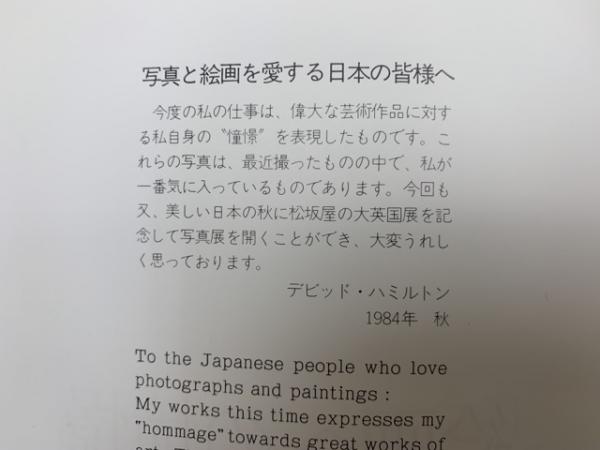 写真と絵画を愛する日本の皆様へ
今度の私の仕事は、偉大な芸術作品に対す
る私自身の〝憧憬〞を表現したものです。こ
れらの写真は、最近撮ったものの中で、私が
一番気に入っているものであります。今回も
又、美しい日本の秋に松坂屋の大英国展を記
念して写真展を開くことができ、大変うれし
く思っております。
デビッド・ハミルトン
1984年 秋
To the Japanese people who love
photographs and paintings :
My works this time expresses my
"hommage" towards great works of